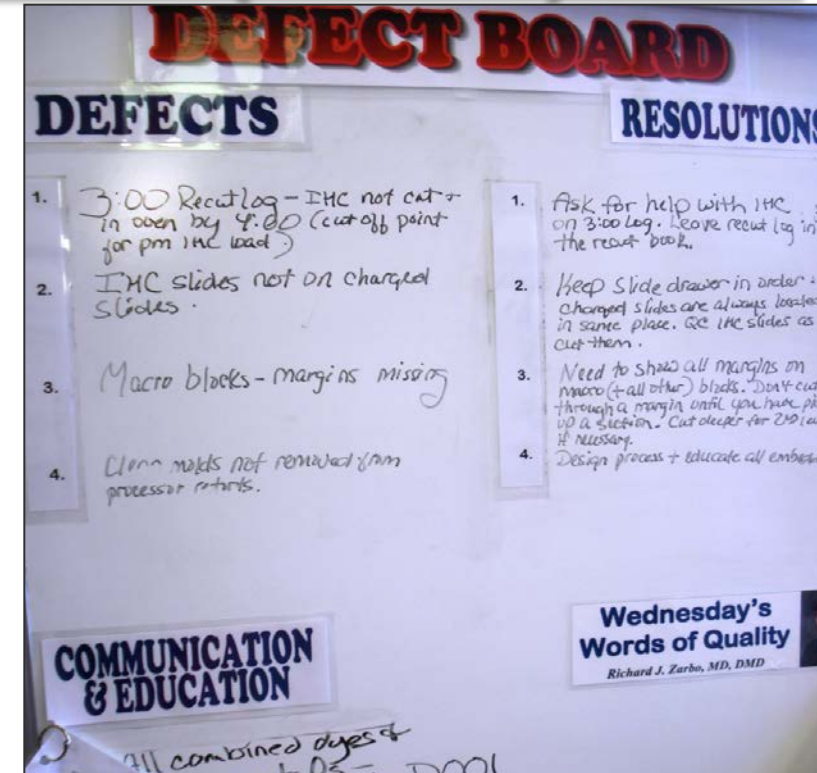 DEFECT BOARD
DEFECTS
1. 3:00 Recut log - IHC not cut +
in oven by 4:00 (cut off point
for pm IHC load)
2. IHC slides not on charged
slides.
3. Macro blocks - margins missing
4. Clean molds not removed from
processor retorts.
RESOLUTIONS
1. Ask for help with IHC
on 3:00 Log. Leave recut log in
the recut book.
2. Keep Slide drawer in order
charged slides are always
in same place. QC IHC slides as
cut them.
3. Need to show all margins on
macro (+ all other) blocks. Don't cut
through a margin until you have
up a section. Cut deeper for
if necessary.
4. Design process + educate all
COMMUNICATION
& EDUCATION
All combined dyes &
Wednesday's
Words of Quality
Richard J. Zarbo, MD, DMD